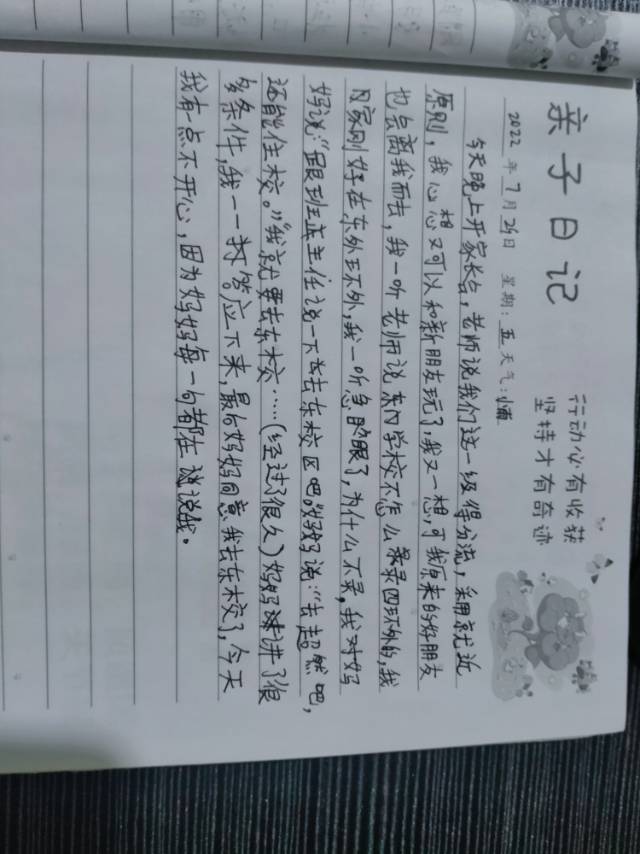 亲子日记
行动必有收获
坚持才有奇迹
2022年7月26日 星期:五 天气:小雨
今天晚上开家长会,老师说我们这一级得分流,采用就近
原则,我心想又可以和新朋友玩了,我又一想,可我原来的好朋友
也会离我而去,我一听老师说东门学校不怎么录录四环外的,我
家刚好在东外环外,我一听急眼了,为什么不录,我对妈
妈说:“跟班主任说一下去东校区吧。”妈妈说:“去超然吧,
还能住校。”“我就要去东校……(经过了很久)妈妈讲了很
多条件,我一一答应下来,最后妈妈同意我去东校了,今天
我有一点不开心,因为妈妈每一句都在说我。